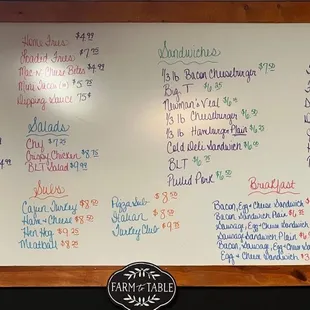 Home Fries $4.99
Loaded Fries $7.75
Mac-n-Cheese Bites $4.99
Mini Tacos $5.75
Dipping Sauce 75¢
Salads
Chef $7.75
Crispy Chicken $8.75
BLT Salad $9.25
Subs
Cajun Turkey $8.50
Ham & Cheese $8.50
Hen Hog $9.25
Meatball $8.25
Pizza Sub $8.50
Italian $8.50
Turkey Club $9.25
Sandwiches
1/3 lb Bacon Cheeseburger $7.50
Big T $6.25
Newman's Veal $6.25
1/3 lb Cheeseburger $6.50
1/3 lb Hamburger Plain $6.25
Cold Deli Sandwich $6.50
BLT $6.25
Pulled Pork $6.50
Breakfast
Bacon, Egg & Cheese Sandwich
Bacon Sandwich Plain
Sausage, Egg & Cheese Sandwich
Sausage Sandwich Plain
Bacon, Sausage, Egg & Cheese
Egg & Cheese Sandwich
FARM to TABLE